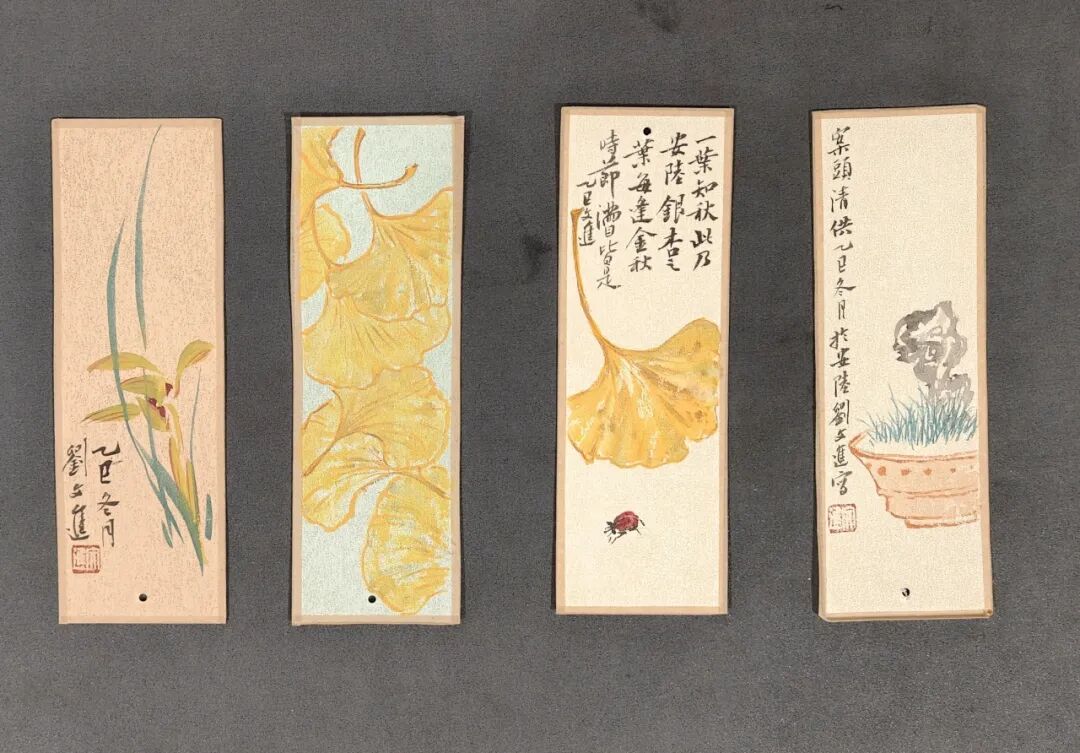 乙巳冬月
劉文進
一葉知秋此乃
安陸銀杏之
葉每逢金秋
時節滿目皆是
乙巳文進
案頭清供乙巳冬月於安陸劉文進寫